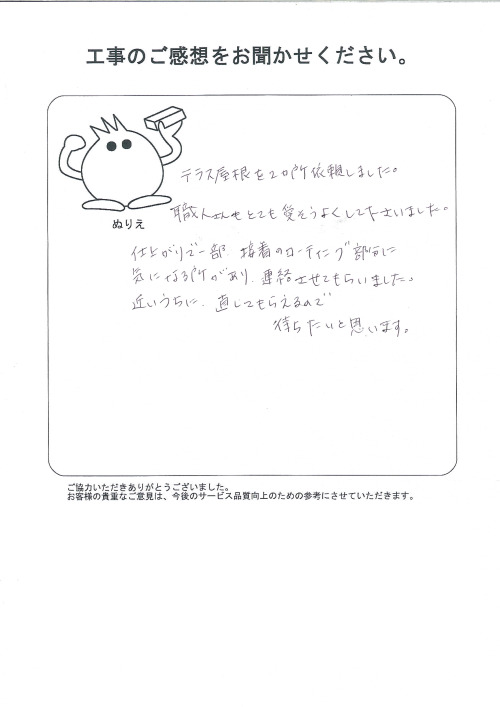 工事のご感想をお聞かせください。
ぬりえ
テラス屋根を2ヵ所依頼しました。
職人さんもとても愛そうよくして下さいました。
仕上がりで一部、接着のコーティング部分に
気になる所があり、連絡させてもらいました。
近いうちに、直してもらえるので
待ちたいと思います。
ご協力いただきありがとうございました。
お客様の貴重なご意見は、今後のサービス品質向上のための参考にさせていただきます。